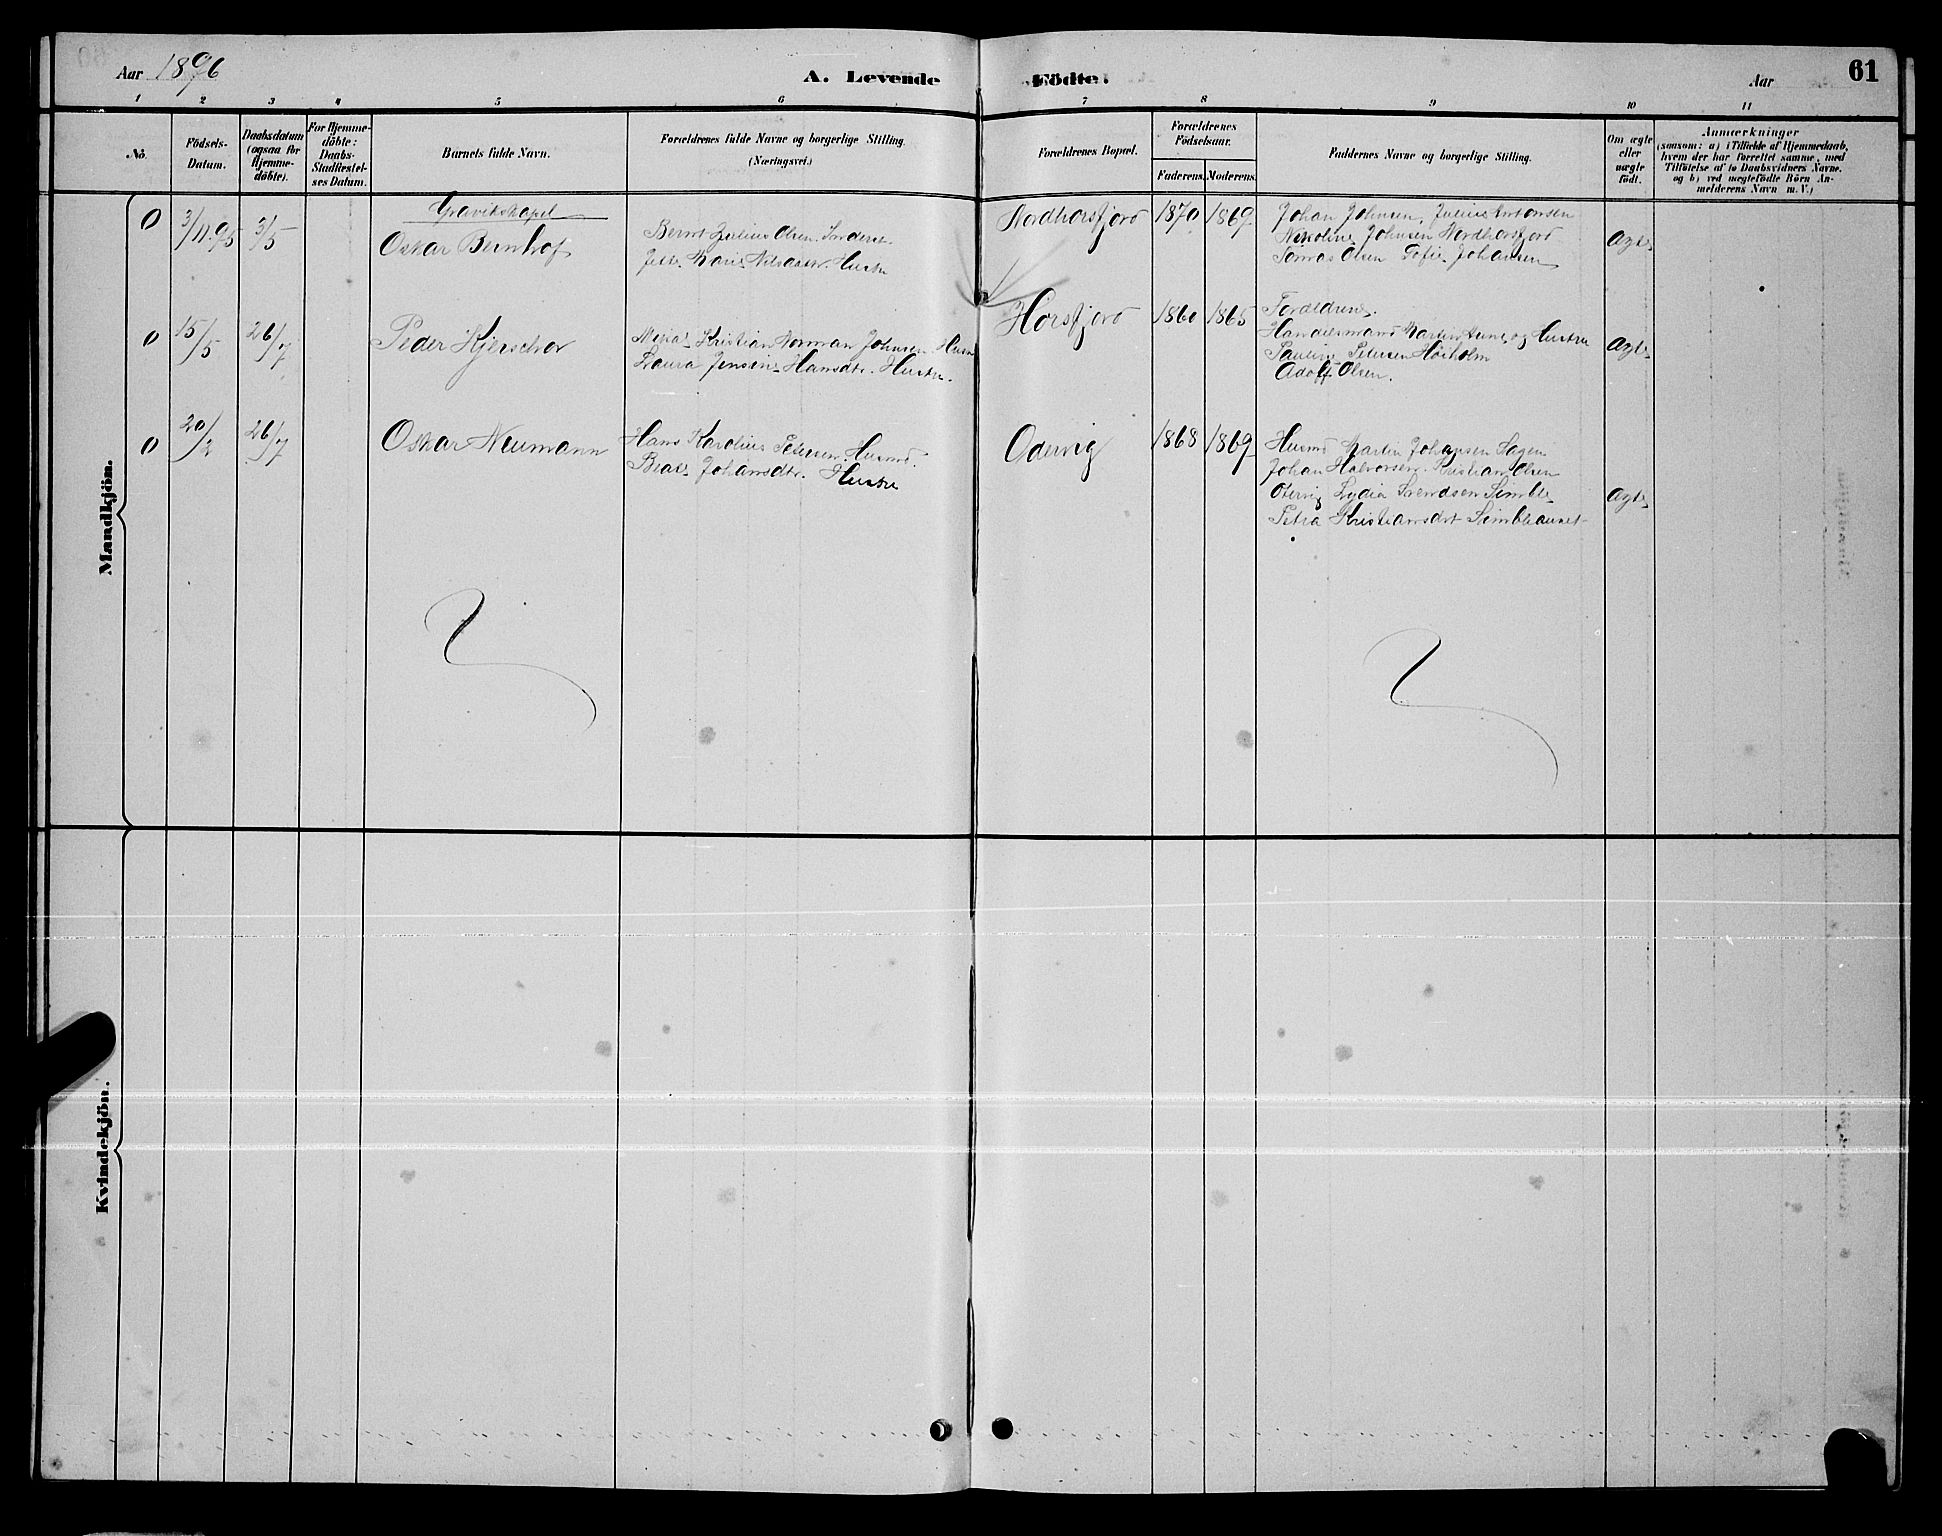 Aar 1896
A. Levende Födte.
Aar
61
1 2 3 4 5 6 7 8 9 10 11
No.
Födsels-Datum.
Daabsdatum (ogsaa for Hjemme-döbte).
For Hjemme-döbte: Daabs-Stadfæstel-ses Datum.
Barnets fulde Navn.
Forældrenes fulde Navne og borgerlige Stilling. (Næringsvei.)
Forældrenes Bopæl.
Forældrenes Födselsaar.
Faderens. Moderens.
Faddernes Navne og borgerlige Stilling.
Om ægte eller uægte födt.
Anmærkninger
(saasom: a) i Tilfælde af Hjemmedaab,
hvem der har forrettet samme, med
Tilföielse af to Daabsvidners Navne.
og b) ved uægtefödte Börn An-
melderens Navn m. V.)
Mandkjön.
Gravikskapel
0 3/11.95 3/5 Oskar Bernhof
Bernt Julius Olsen
Marie Nilsdatr. Hustru
Nordhorsfjord 1870 1869
Johan Johnsen, Julius Antonsen
Nikoline Johnsen Nordhorsfjord
Tomas Olsen Sofie Johansen
Ægte
0 15/5 26/7 Peder Kjerschov
Kristian Norman Johnsen
Laura Jensine Hansdtr. Hustru.
Horsfjord 1860 1865
Forældrene.
Handelsmand Martin Aune og Hustru
Pauline Petersen Horsholm
Adolf Olsen.
Ægte
0 20/2 26/7 Oskar Neumann
Hans Karolius Petersen Husmd.
Johansdtr. Hustru
Odervig 1868 1869
Husmd Martin Johansen Hagen
Johan Halvorsen, Kristian Olsen
Otervig Lydia Svendsen Simble
Petra Kristiansdat Simbleaunet
Ægte
Kvindekjön.